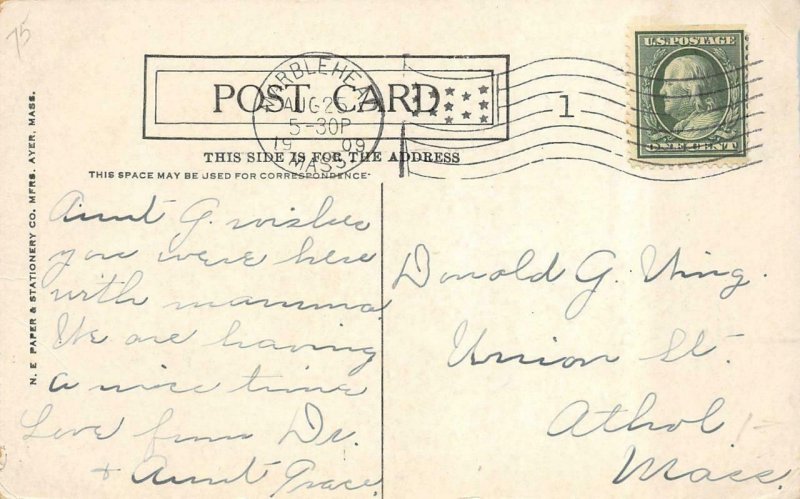 75
U.S. POSTAGE
MARBLEHEAD
POST CARD
AUG 25
5-30P
1909
MASS.
1
ONE CENT
THIS SIDE IS FOR THE ADDRESS
THIS SPACE MAY BE USED FOR CORRESPONDENCE
N. E PAPER & STATIONERY CO. MFRS. AYER, MASS.
Aunt G. wishes
you were here
with mamma
We are having
a nice time
Love from Dr.
& Aunt Grace.
Donald G.
Union St.
Athol
Mass.